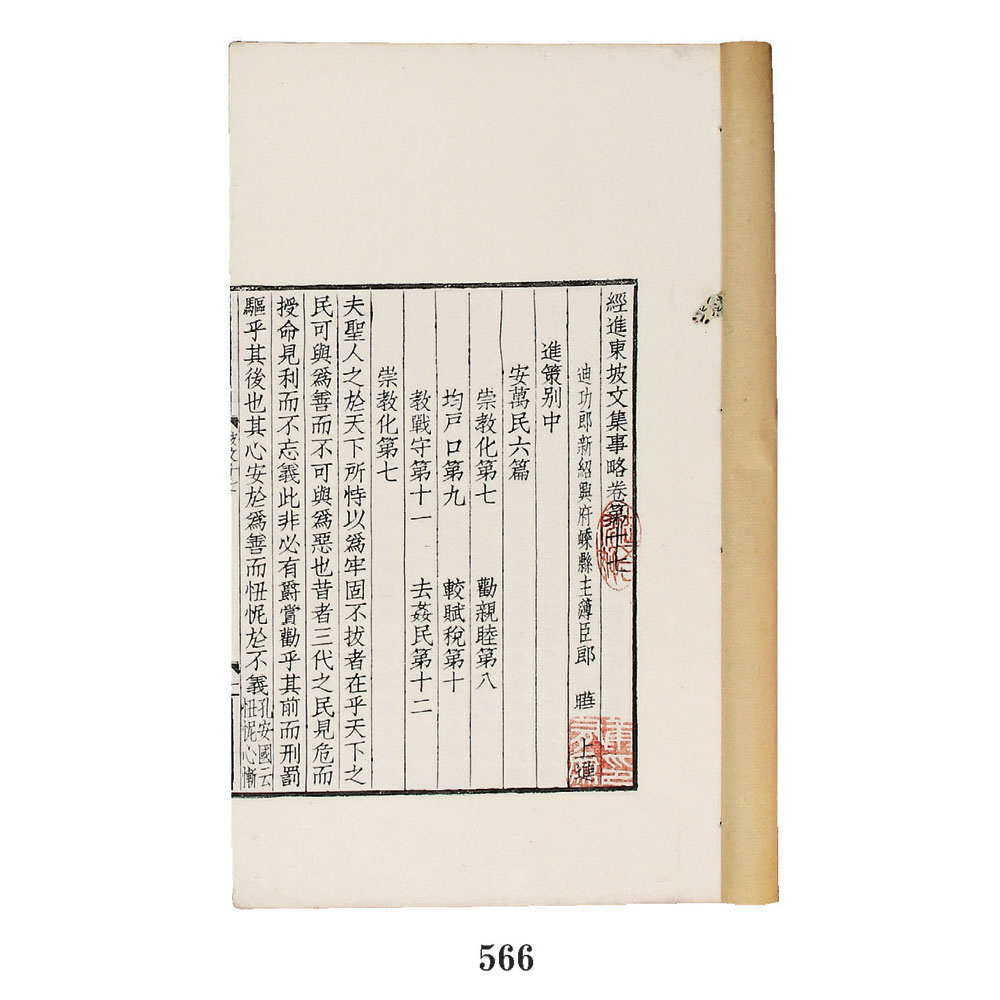 經進東坡文集事略卷第十七
迪功郎新紹興府嵊縣主簿臣郎 曄 上進
進策別中
安萬民六篇
崇教化第七 勸親睦第八
均戶口第九 較賦稅第十
教戰守第十一 去姦民第十二
崇教化第七
夫聖人之於天下所恃以爲牢固不拔者在乎天下之
民可與爲善而不可與爲惡也昔者三代之民見危而
授命見利而不忘義此非必有爵賞勸乎其前而刑罰
驅乎其後也其心安於爲善而忸怩於不義孔安國云
忸怩心慚
566